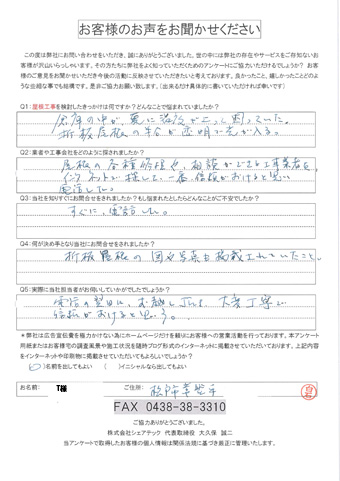 お客様のお声をお聞かせください
この度は弊社にお問い合わせをいただき、誠にありがとうございました。世の中には弊社の存在やサービスをご存知ないお
客様が沢山いらっしゃいます。その方たちに弊社をよく知っていただくためのアンケートにご協力いただけるでしょうか? お客
様のご意見をお聞かせいただき今後の活動に反映させていただきたいと考えております。良かったこと、嬉しかったことどのよ
うな些細な事でも結構です。是非ご協力お願い致します。(出来るだけ具体的に書いていただければ幸いです)
Q1:屋根工事を検討したきっかけは何ですか?どんなことで悩まれていましたか?
倉庫の中が、夏に
折板屋根の半分が透明で光が入る。
Q2:業者や工事会社をどのように探されましたか?
屋根の各種修理や、相談ができる工事業者を、
インターネットで探して、一番、信頼がおけると思い
電話した。
Q3:当社を知りすぐにお問合せをされましたか?もし悩まれたとしたらどんなことがご不安でしたか?
すぐに、電話した。
Q4:何が決め手となり当社にお問合せをされましたか?
折板屋根の図や写真も掲載されていたこと。
Q5:実際に当社担当者がお伺いしていかがでしたでしょうか?
電話の翌日に、お越し下さり、大変丁寧で
信頼がおけると思う。
*弊社は広告宣伝費を極力かけない為にホームページだけを頼りにお客様への営業活動を行っております。本アンケート
用紙またはお客様宅の調査風景や施工状況を随時ブログ形式のインターネットに掲載させていただいております。上記内容
をインターネットや印刷物に掲載させていただいてもよろしいでしょうか?
( )名前を出してもよい ( )イニシャルなら出してもよい
お名前: T様 ご住所:
FAX 0438-38-3310
ご協力ありがとうございました。
株式会社シェアテック 代表取締役 大久保 誠二
当アンケートで取得したお客様の個人情報は関係法規に基づき厳正に管理いたします。